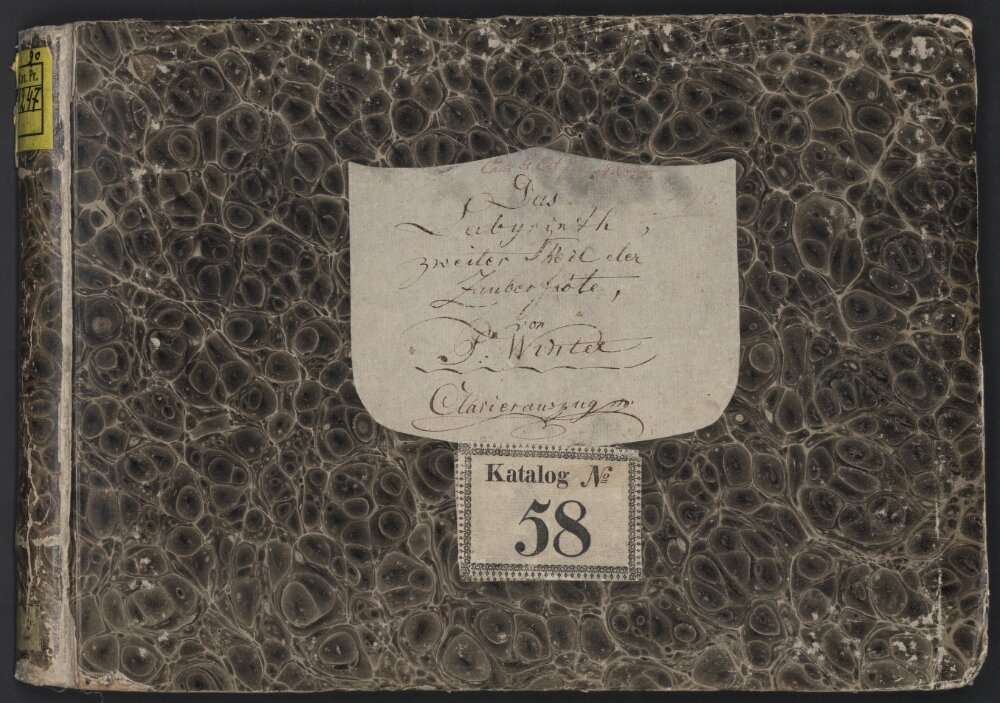 90
us. Pr.
247
Das
Labyrinth,
zweiter Theil der
Zauberflöte,
von
P. Winter
Clavierauszug
Katalog No
58